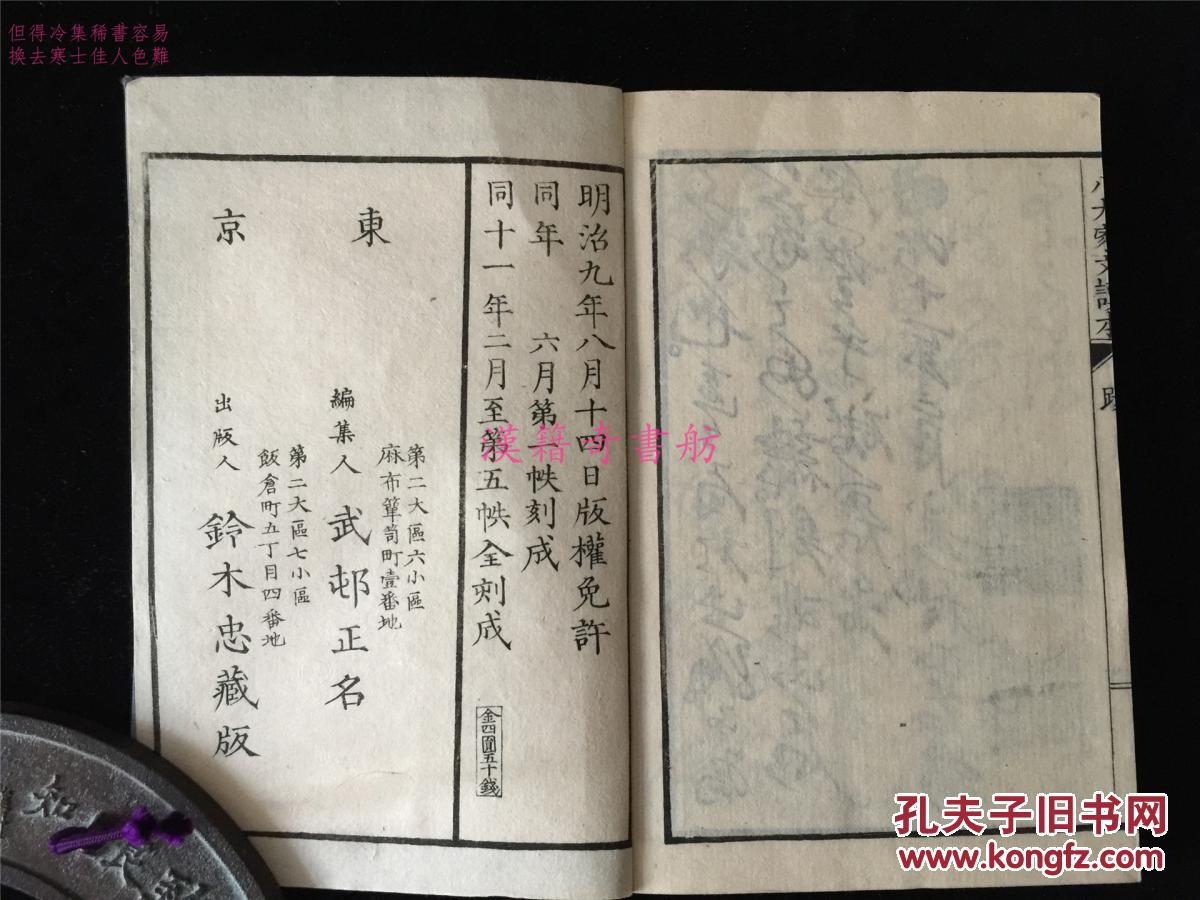 但得冷集稀書容易
換去寒士佳人色難
明治九年八月十四日版權免許
同年 六月第一帙刻成
同十一年二月至第五帙全刻成
金四圓五十錢
東京
第二大區六小區
麻布簞笥町壹番地
編集人 武邨正名
第二大區七小區
飯倉町五丁目四番地
出版人 鈴木忠藏版
漢籍奇書舫
知
孔夫子旧书网
www.kongfz.com